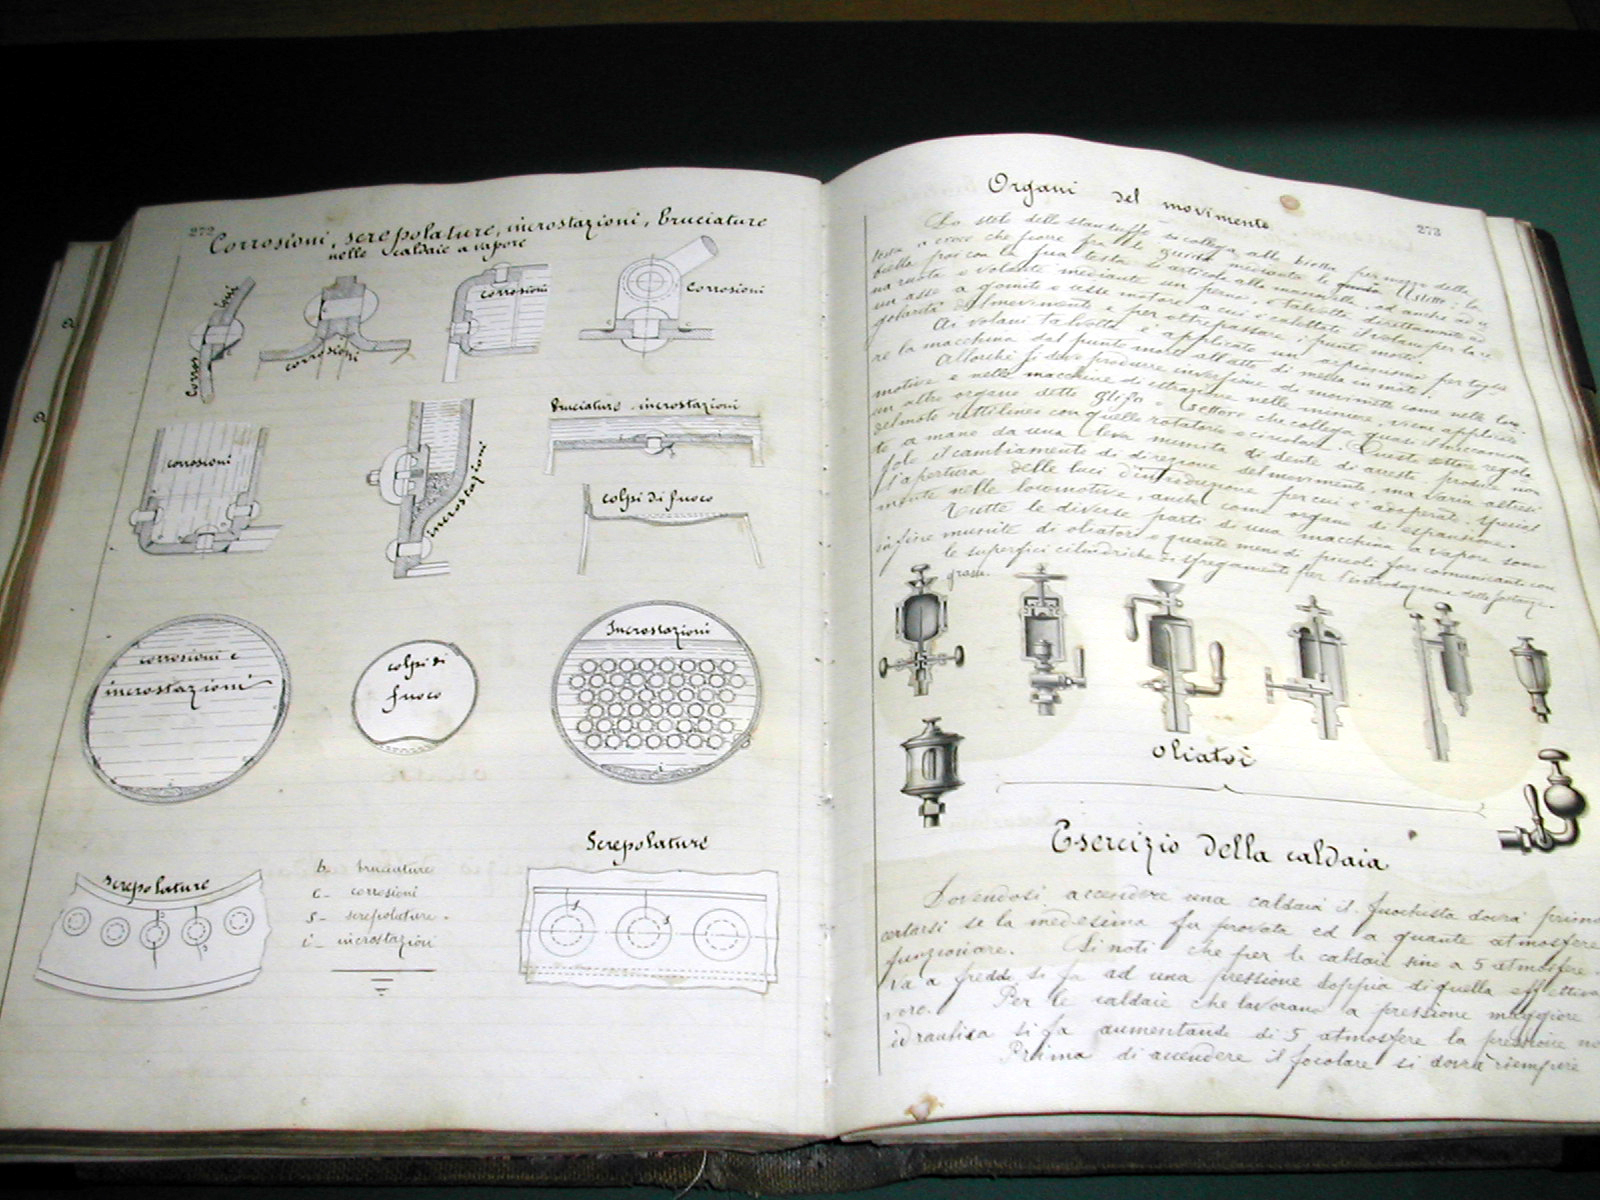 272
Corrosioni, screpolature, incrostazioni, bruciature
nelle caldaie a vapore
corrosioni
corrosioni
corrosioni
Corrosioni
corrosioni
incrostazioni
Bruciature - incrostazioni
colpi di fuoco
corrosioni e
incrostazioni
colpi di
fuoco
Incrostazioni
i
i
screpolature
s
s
b - bruciature
c - corrosioni
s - screpolature.
i - incrostazioni
Screpolature
s
s
273
Organi del movimento
Lo stelo dello stantuffo si collega alla biella per mezzo della
testa a croce che scorre fra le guide mediante le guide la
biella poi con la sua testa si articola alla manovella, od anche ad u
na ruota o volante mediante un perno, e talvolta direttamente ad
un asse a gomito o asse motore a cui è calettato il volano per la re
golarità del movimento e per oltrepassare i punti morti.
Ai volani talvolta è applicato un per toglie
re la macchina dal punto morto all'atto di messa in moto.
Allorchè si deve produrre inversione di movimento come nelle loco-
motive e nelle macchine di estrazione nelle miniere, viene applicato
un altro organo detto glifo o settore che collega quasi il meccanismo
del moto rettilineo con quello rotatorio o circolare. Questo settore regola
to a mano da una leva munita di dente di arresto produce non
solo il cambiamento di direzione del movimento, ma varia altresì
l'apertura delle luci d'introduzione per cui è adoperato special
mente nelle locomotive, anche come organo di espansione.
Tutte le diverse parti di una macchina a vapore sono
infine munite di oliatori o quanto meno di piccoli fori comunicanti con
le superfici cilindriche di sfregamento per l'introduzione delle sostanze
grasse.
Oliatori
Esercizio della caldaia
Dovendosi accendere una caldaia il fuochista dovrà prima
certarsi se la medesima fu provata ed a quante atmosfere
funzionare. Si noti che per le caldaie sino a 5 atmosfere
va a freddo si fa ad una pressione doppia di quella effettiva
voro. Per le caldaie che lavorano a pressione maggiore
idraulica si fa aumentando di 5 atmosfere la pressione no
Prima di accendere il focolare si dovrà riempire